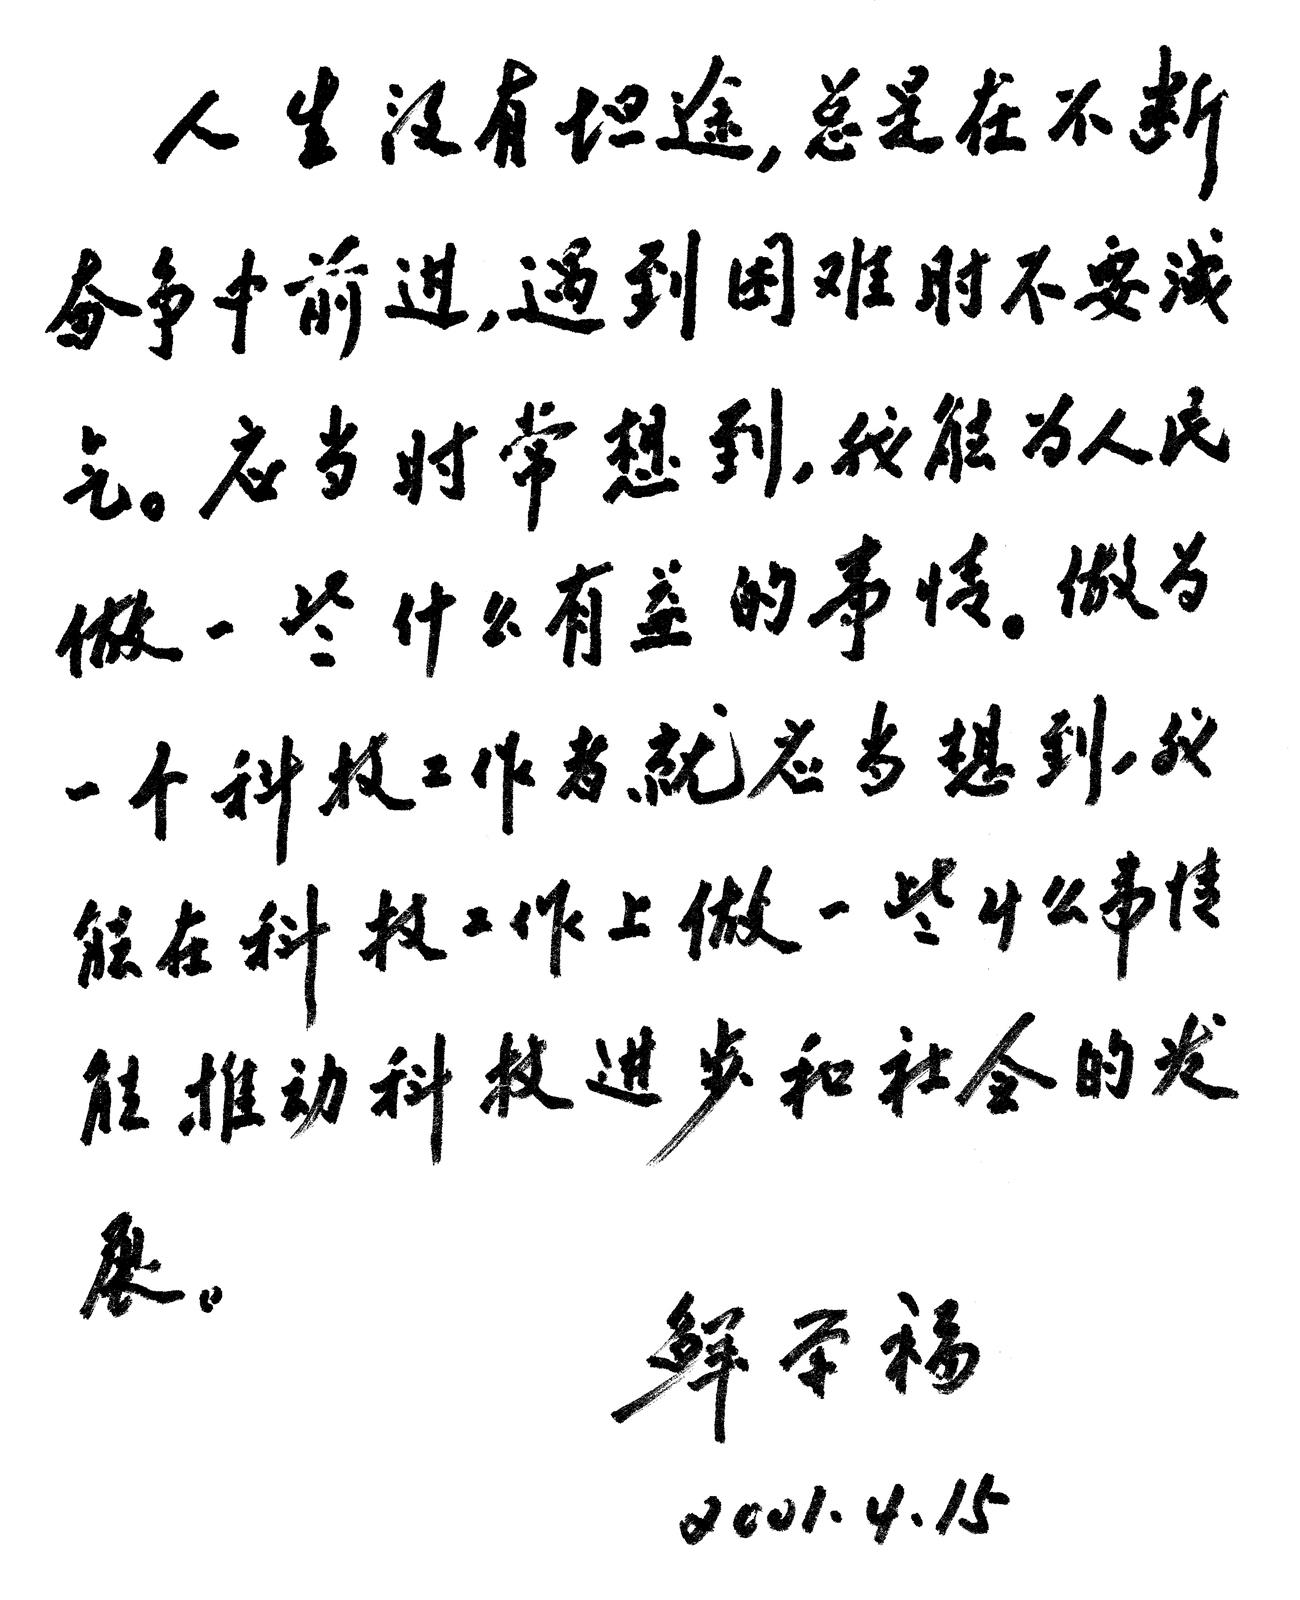 人生没有坦途,总是在不断
奋争中前进,遇到困难时不要泄
气。应当时常想到,我能为人民
做一些什么有益的事情。做为
一个科技工作者就应当想到,我
能在科技工作上做一些什么事情
能推动科技进步和社会的发
展。
鲜学福
2001.4.15